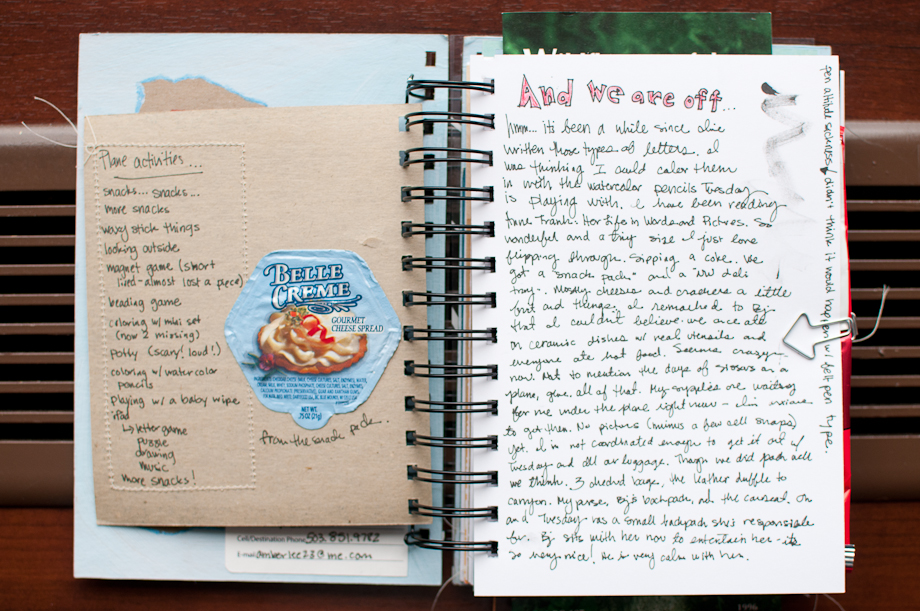 Plane activities...
snacks... snacks...
more snacks
waxy stick things
looking outside
magnet game (short
lived - almost lost a piece)
beading game
coloring w/ mini set
(now 2 missing)
potty (scary! loud!)
coloring w/ water color
pencils
Playing w/ a baby wipe
iPad
↳ letter game
puzzle
drawing
music
more snacks!
BELLE
CREME
GOURMET
CHEESE SPREAD
NET WT.
.75 OZ (21g)
from the snack pack...
Cell/Destination Phone 503.851.9782
E-mail amberlee23@me.com
And we are off...
hmm... it's been a while since I've
written those types of letters. I
was thinking I could color them
in with the watercolor pencils Tuesday
is playing with. I have been reading
Anne Frank: Her life in Words and Pictures. So
wonderful and a tiny size I just love
flipping through. Sipping a coke. We
got a "snack pack" and a "NW deli
tray". Mostly cheeses and crackers a little
fruit and things. I remarked to Bj
that I couldn't believe we once ate
on ceramic dishes w/ real utensils and
everyone ate hot food. Seems crazy
now. Not to mention the days of scissors on a
plane, glue, all of that. My supplies are waiting
for me under the plane right now - I'm anxious
to get them. No pictures (minus a few cell snaps)
yet. I'm not coordinated enough to get it out w/
Tuesday and all our luggage. Though we did pack well
we think. 3 checked bags, the leather duffle to
carryon. My purse, Bj's backpack, and the carseat. Oh
and Tuesday has a small backpack she's responsible
for. Bj sits with her now to entertain her - its
so very nice! He is very calm with her.
pen altitude sickness, didn't think it would happen w/ felt pen type.